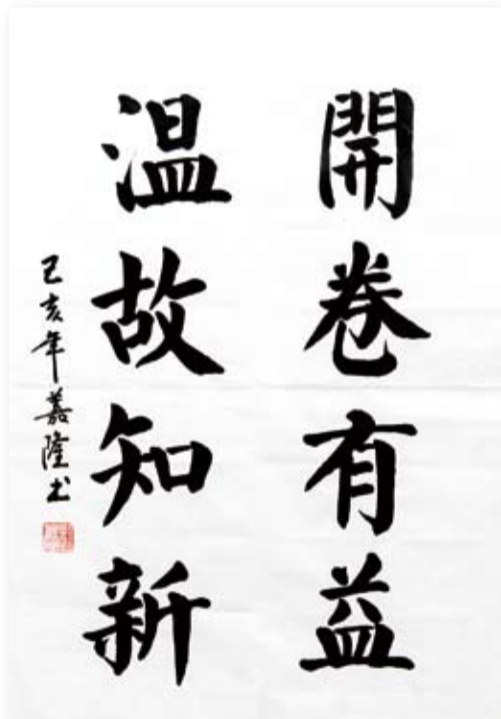 開卷有益
温故知新
己亥年嘉隆书